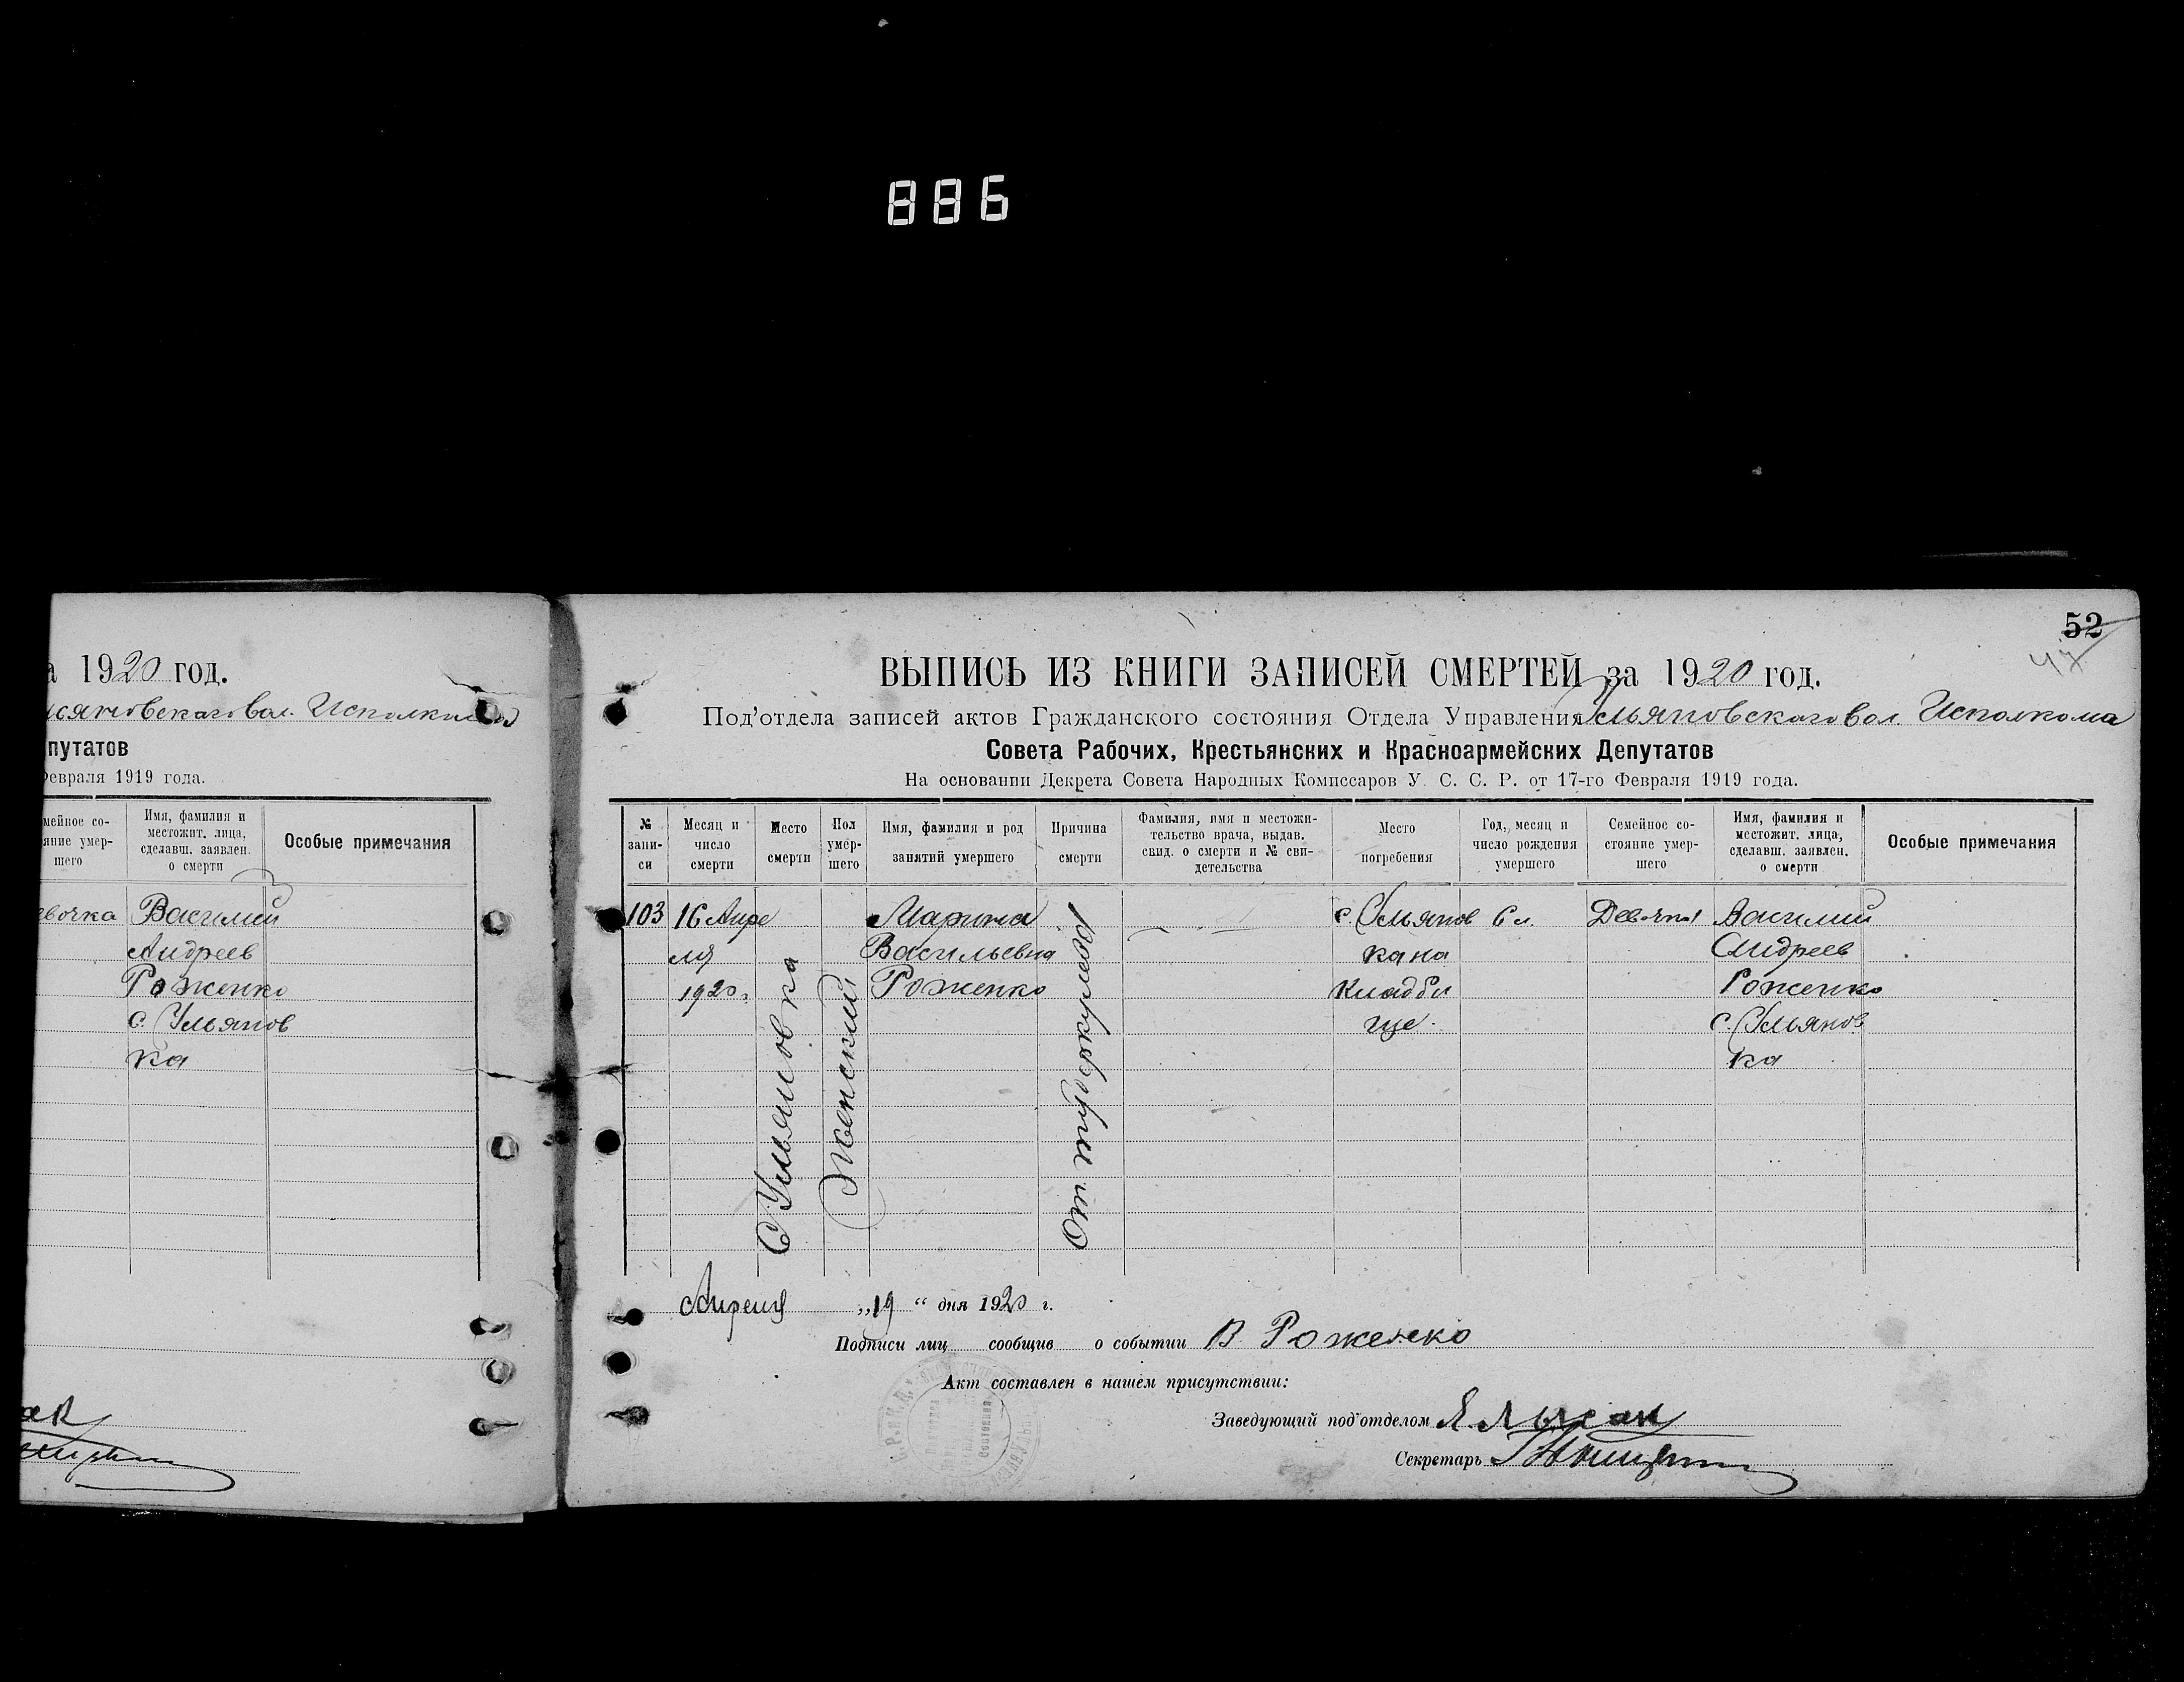 886
а 1920 год.
льяновскаго вол. Исполкома
путатов
февраля 1919 года.
мейное со-
яние умер-
шего
Имя, фамилия и
местожит. лица,
сделавш. заявлен.
о смерти
Особые примечания
евочка
Василий
Андреев
Роженко
с. Ульянов
ка
52
47
ВЫПИСЬ ИЗ КНИГИ ЗАПИСЕЙ СМЕРТЕЙ за 1920 год.
Под'отдела записей актов Гражданского состояния Отдела Управления Ульяновскаго вол. Исполкома
Совета Рабочих, Крестьянских и Красноармейских Депутатов
На основании Декрета Совета Народных Комиссаров У. С. С. Р. от 17-го Февраля 1919 года.
№
запи-
си
Месяц и
число
смерти
Место
смерти
Пол
умер-
шего
Имя, фамилия и род
занятий умершего
Причина
смерти
Фамилия, имя и местожи-
тельство врача, выдав.
свид. о смерти и № сви-
детельства
Место
погребения
Год, месяц и
число рождения
умершего
Семейное со-
стояние умер-
шего
Имя, фамилия и
местожит. лица,
сделавш. заявлен.
о смерти
Особые примечания
103
16 Апре
ля
1920 г.
С Ульяновка
Женский
Марина
Васильевна
Роженко
От туберкулеза
с. Ульянов
ка на
Кладби
ще.
6 л.
Девочка
Василий
Андреев
Роженко
с. Ульянов
ка
Апреля „19“ дня 1920 г.
Подписи лиц сообщив о событии В. Роженко
Акт составлен в нашем присутствии:
Заведующий под'отделом
Секретарь